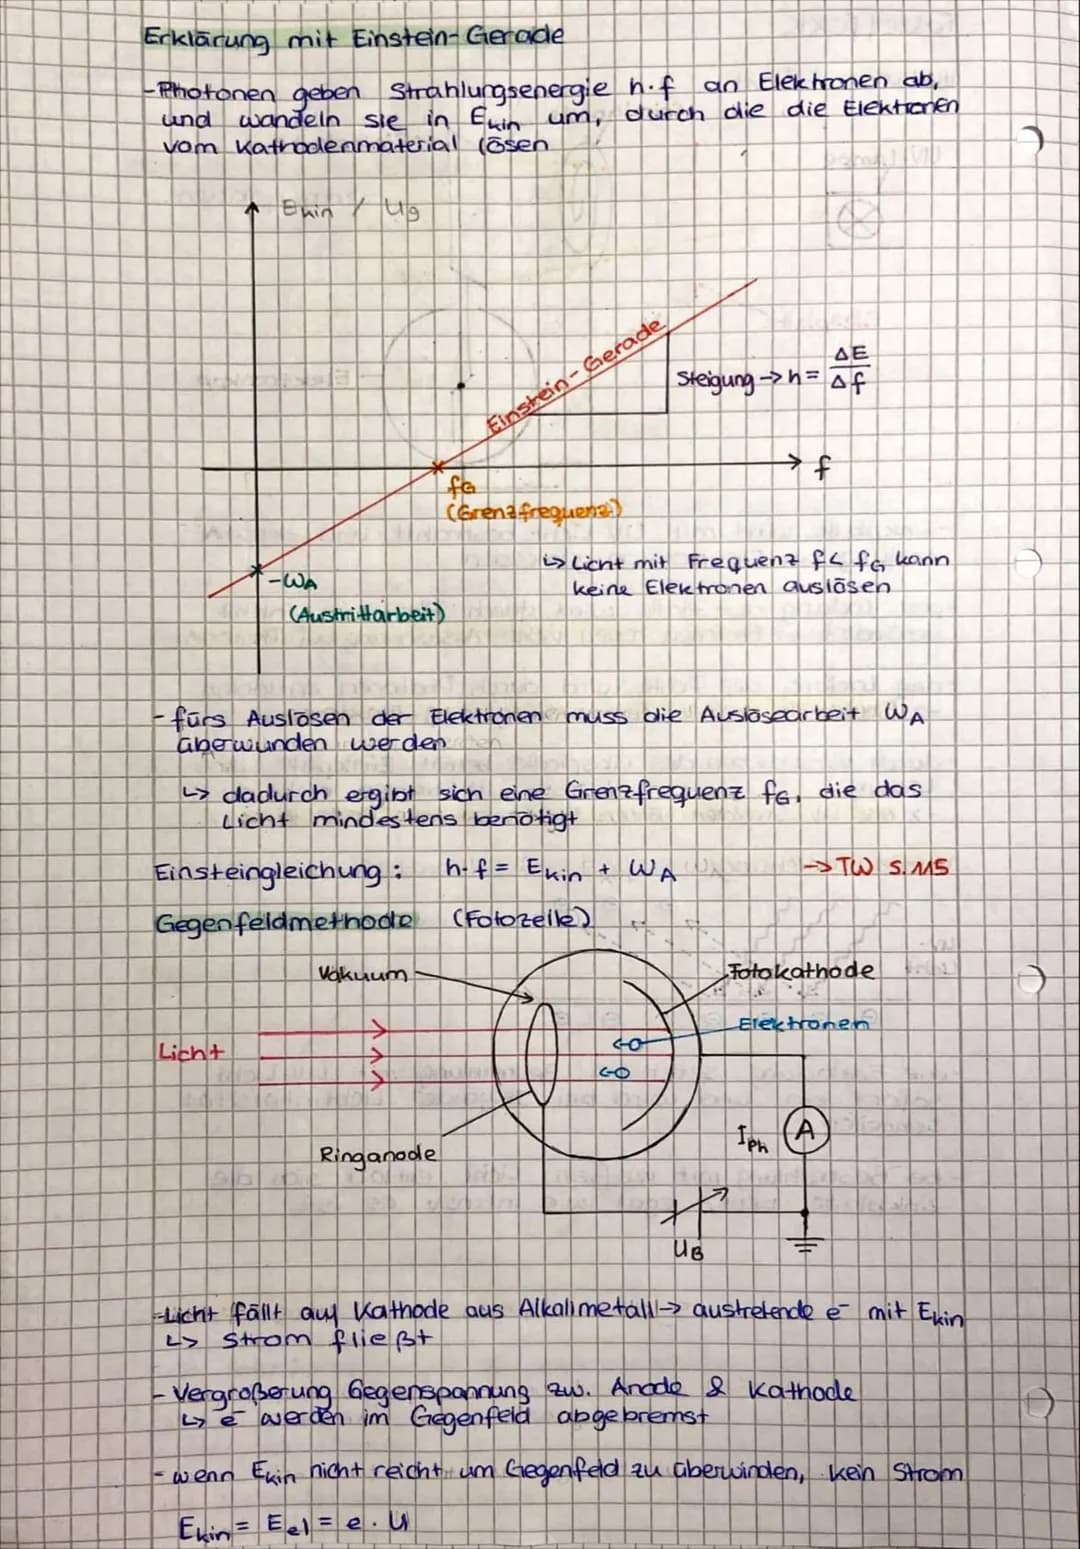 Erklärung mit Einstein-Gerade
-Photonen geben Strahlungsenergie h·f an Elektronen ab,
und wandeln sie in Ekin um, durch die die Elektronen
vom Kathodenmaterial lösen
Ekin / UG
Einstein-Gerade
Steigung → h = ΔE/Δf
f
fG
(Grenzfrequenz)
↳ Licht mit Frequenz f< fG kann
keine Elektronen auslösen
-WA
(Austrittarbeit)
- fürs Auslösen der Elektronen muss die Auslösearbeit WA
überwunden werden
↳ dadurch ergibt sich eine Grenzfrequenz fG, die das
Licht mindestens benötigt
Einsteingleichung: h·f = Ekin + WA → TW S. 115
Gegenfeldmethode (Fotozelle)
Vakuum
Fotokathode
Elektronen
Licht
Ringanode
Iph
A
UB
-Licht fällt auf Kathode aus Alkalimetall → austretende e⁻ mit Ekin
↳ Strom fließt
- Vergroßerung Gegenspannung zw. Anode & Kathode
↳ e⁻ werden im Gegenfeld abgebremst
- wenn Ekin nicht reicht um Gegenfeld zu überwinden, kein Strom
Ekin = Eel = e · U